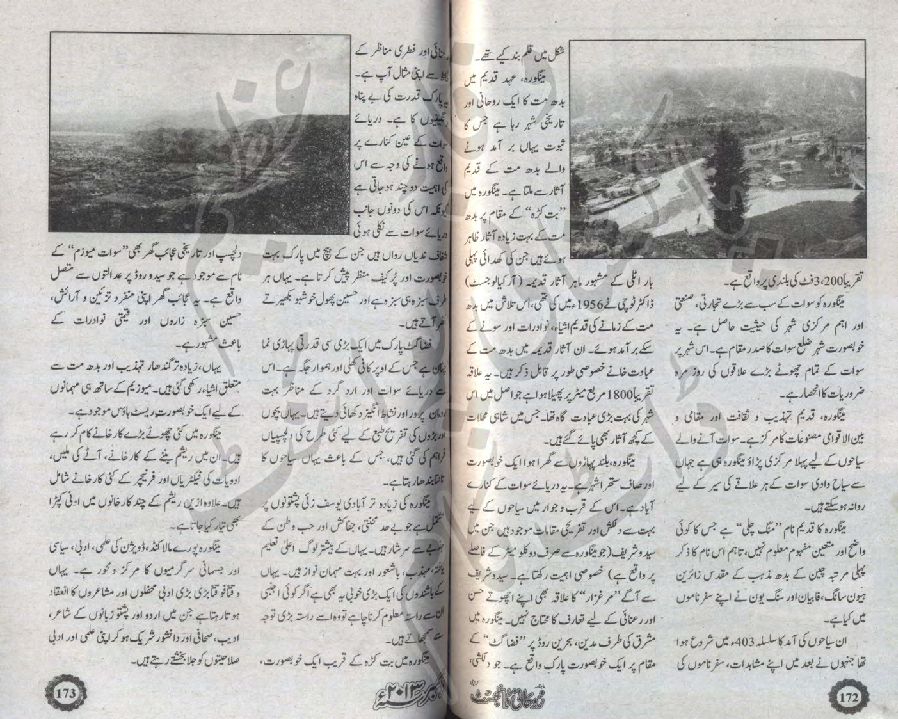 تقریباً 3,200 فٹ کی بلندی پر واقع ہے۔
مینگورہ کو سوات کے سب سے بڑے تجارتی، صنعتی
اور اہم مرکزی شہر کی حیثیت حاصل ہے۔ یہ
خوبصورت شہر ضلع سوات کا صدر مقام ہے۔ اس شہر پر
سوات کے تمام چھوٹے بڑے علاقوں کی روز مرہ
ضروریات کا انحصار ہے۔
مینگورہ، قدیم تہذیب و ثقافت اور مقامی و
بین الاقوامی مصنوعات کا مرکز ہے۔ سوات آنے والے
سیاحوں کے لیے پہلا مرکزی پڑاؤ مینگورہ ہی ہے جہاں
سے سیاح وادی سوات کے ہر علاقے کی سیر کے لیے
روانہ ہوسکتے ہیں۔
مینگورہ کا قدیم نام ”منگ چلی“ ہے جس کا کوئی
واضح اور متعین مفہوم معلوم نہیں، تاہم اس نام کا ذکر
پہلی مرتبہ چین کے بدھ مذہب کے مقدس زائرین
ہیون سانگ، فاہیان اور سنگ یون نے اپنے سفرناموں
میں کیا ہے۔
ان سیاحوں کی آمد کا سلسلہ 403ء میں شروع ہوا
تھا جنہوں نے بعد میں اپنے مشاہدات، سفرناموں کی
شکل میں قلم بند کیے تھے۔
مینگورہ، عہد قدیم میں
بدھ مت کا ایک روحانی اور
تاریخی شہر رہا ہے جس کا
ثبوت یہاں برآمد ہونے
والے بدھ مت کے قدیم
آثار سے ملتا ہے۔ مینگورہ میں
”بت کڑہ“ کے مقام پر بدھ
مت کے بہت زیادہ آثار ظاہر
ہوئے ہیں جن کی کھدائی پہلی
بار اٹلی کے مشہور ماہر آثار قدیمہ (آرکیالوجسٹ)
ڈاکٹر ٹوچی نے 1956ء میں کی تھی، اس تلاش میں بدھ
مت کے زمانے کی قدیم اشیاء، نوادرات اور سونے کے
سکے برآمد ہوئے۔ ان آثار قدیمہ میں بدھ مت کے
عبادت خانے خصوصی طور پر قابل ذکر ہیں۔ یہ علاقہ
تقریباً 1800 مربع میٹر پر پھیلا ہوا ہے جو اصل میں اس
شہر کی بہت بڑی عبادت گاہ تھا۔ جس میں شاہی محلات
کے کچھ آثار بھی پائے گئے ہیں۔
مینگورہ، بلند پہاڑوں سے گھرا ہوا ایک خوبصورت
اور صاف ستھرا شہر ہے۔ یہ دریائے سوات کے کنارے
آباد ہے۔ اس کے قرب و جوار میں سیاحوں کے لیے
بہت سے دلکش اور تفریحی مقامات موجود ہیں جن میں
سیدو شریف (جو مینگورہ سے صرف دو کلو میٹر کے فاصلے
پر واقع ہے) خصوصی اہمیت رکھتا ہے۔ سیدو شریف
سے آگے ”مرغزار“ کا علاقہ بھی اپنے اچھوتے حسن
اور رعنائی کے لیے تعارف کا محتاج نہیں۔ مینگورہ میں
مشرق کی طرف مدین، بحرین روڈ پر ”فضا گٹ“ کے
مقام پر ایک خوبصورت پارک واقع ہے۔ جو دلکشی،
172
رعنائی اور فطری مناظر کے
سے اپنی مثال آپ ہے۔
یہ پارک قدرت کی بے پناہ
کا ہے۔ دریائے
سوات کے عین کنارے پر
واقع ہونے کی وجہ سے اس
کی اہمیت دو چند ہوجاتی ہے
کیونکہ اس کی دونوں جانب
دریائے سوات سے نکلی ہوئی
شفاف ندیاں رواں ہیں جن کے بیچ میں پارک بہت
خوبصورت اور پُرکیف منظر پیش کرتا ہے۔ یہاں ہر
طرف سبزہ ہی سبزہ ہے اور حسین پھول خوشبو بکھیرتے
نظر آتے ہیں۔
فضا گٹ پارک میں ایک بڑی سی قدرتی پہاڑی نما
چٹان ہے جس کے اوپر کافی کھلی اور ہموار جگہ ہے۔ اس
سے دریائے سوات اور ارد گرد کے مناظر بہت
پرور اور نشاط انگیز دکھائی دیتے ہیں۔ یہاں بچوں
اور بڑوں کی تفریح طبع کے لیے کئی طرح کی دلچسپیاں
فراہم کی گئی ہیں، جس کے باعث یہاں سیاحوں کا
تانتا بندھا رہتا ہے۔
مینگورہ کی زیادہ تر آبادی یوسف زئی پشتونوں پر
مشتمل ہے جو بے حد محنتی، جفاکش اور حب وطن کے
جذبے سے سرشار ہیں۔ یہاں کے بیشتر لوگ اعلیٰ تعلیم
یافتہ، مہذب، باشعور اور بہت مہمان نواز ہیں۔ یہاں
کے باشندوں کی ایک بڑی خوبی یہ بھی ہے اگر کوئی اجنبی
ان سے راستہ معلوم کرنا چاہے تو وہ اسے راستہ بڑی توجہ
سے سمجھاتے ہیں۔
مینگورہ میں بت کڑہ کے قریب ایک خوبصورت،
دلچسپ اور تاریخی عجائب گھر بھی ”سوات میوزیم“ کے
نام سے موجود ہے جو سیدو روڈ پر عدالتوں سے متصل
واقع ہے۔ یہ عجائب گھر اپنی منفرد تزئین و آرائش،
حسین سبزہ زاروں اور قیمتی نوادرات کے
باعث مشہور ہے۔
یہاں، زیادہ تر گندھارا تہذیب اور بدھ مت سے
متعلق اشیاء رکھی گئی ہیں۔ میوزیم کے ساتھ ہی مہمانوں
کے لیے ایک خوبصورت ریسٹ ہاؤس موجود ہے۔
مینگورہ میں کئی چھوٹے بڑے کارخانے کام کر رہے
ہیں۔ ان میں ریشم بننے کے کارخانے، آٹے کی ملیں،
ادویات کی فیکٹریاں اور فرنیچر کے کئی کارخانے شامل
ہیں۔ علاوہ ازیں ریشم کے چند کارخانوں میں اونی کپڑا
بھی تیار کیا جاتا ہے۔
مینگورہ پورے مالاکنڈ ڈویژن کی علمی، ادبی، سیاسی
اور جسمانی سرگرمیوں کا مرکز و محور ہے۔ یہاں
وقتاً فوقتاً بڑی بڑی ادبی محفلوں اور مشاعروں کا انعقاد
ہوتا رہتا ہے جن میں اردو اور پشتو زبانوں کے شاعر،
ادیب، صحافی اور دانشور شریک ہو کر اپنی علمی اور ادبی
صلاحیتوں کو جلا بخشتے رہتے ہیں۔
173